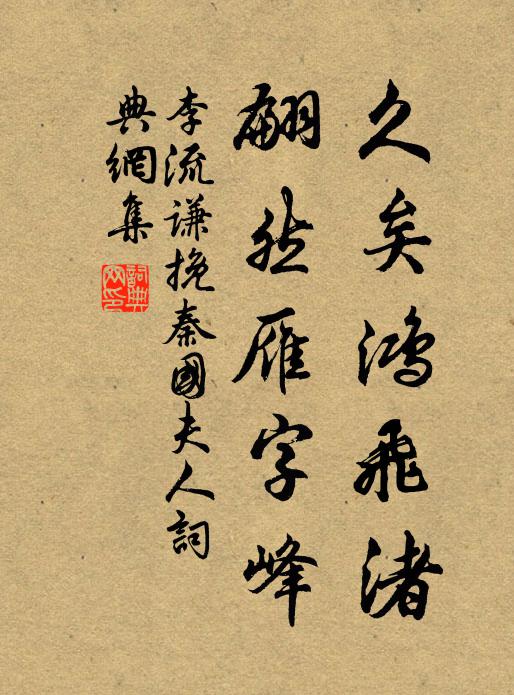 久矣鴻飛渚
翩然雁字峰
李流謙挽秦國夫人詞
典網集
詞典網印